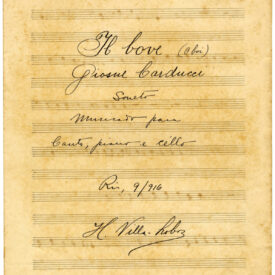 Il bove (O boi)
Giosuè Carducci
Soneto
Musicado para
Canto, piano e cello
Rio, 9/916
H. Villa-Lobos